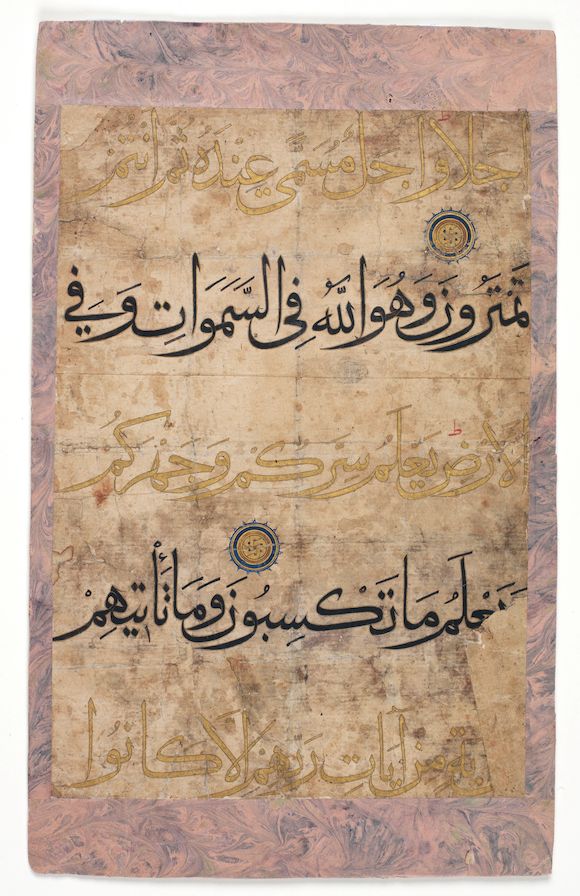 جلا واجل مُسَمًّى عِنْدَهُ ثُمَّ انتُمْ
تَمْتَرُونَ وَهُوَ اللّٰهُ فِى السَّمَوَاتِ وَفِي
الارْضِ يَعْلَمُ سِرَّكُمْ وَجَهْرَكُمْ
وَيَعْلَمُ مَا تَكْسِبُونَ وَمَا تَأْتِيهِمْ
يَةٍ مِنْ اٰيَاتِ رَبِّهِمْ الَّا كَانُوا